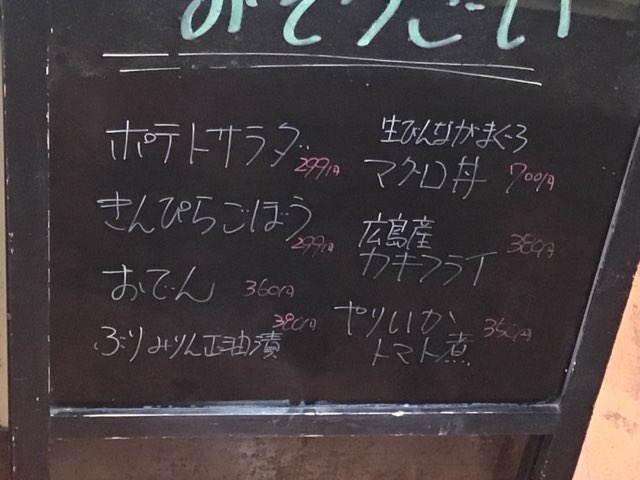 ポテトサラダ 299円
きんぴらごぼう 299円
おでん 360円
ぶりみりん正油漬 380円
生びんながまぐろ
マグロ丼 700円
広島産
カキフライ 380円
やりいか
トマト煮 350円